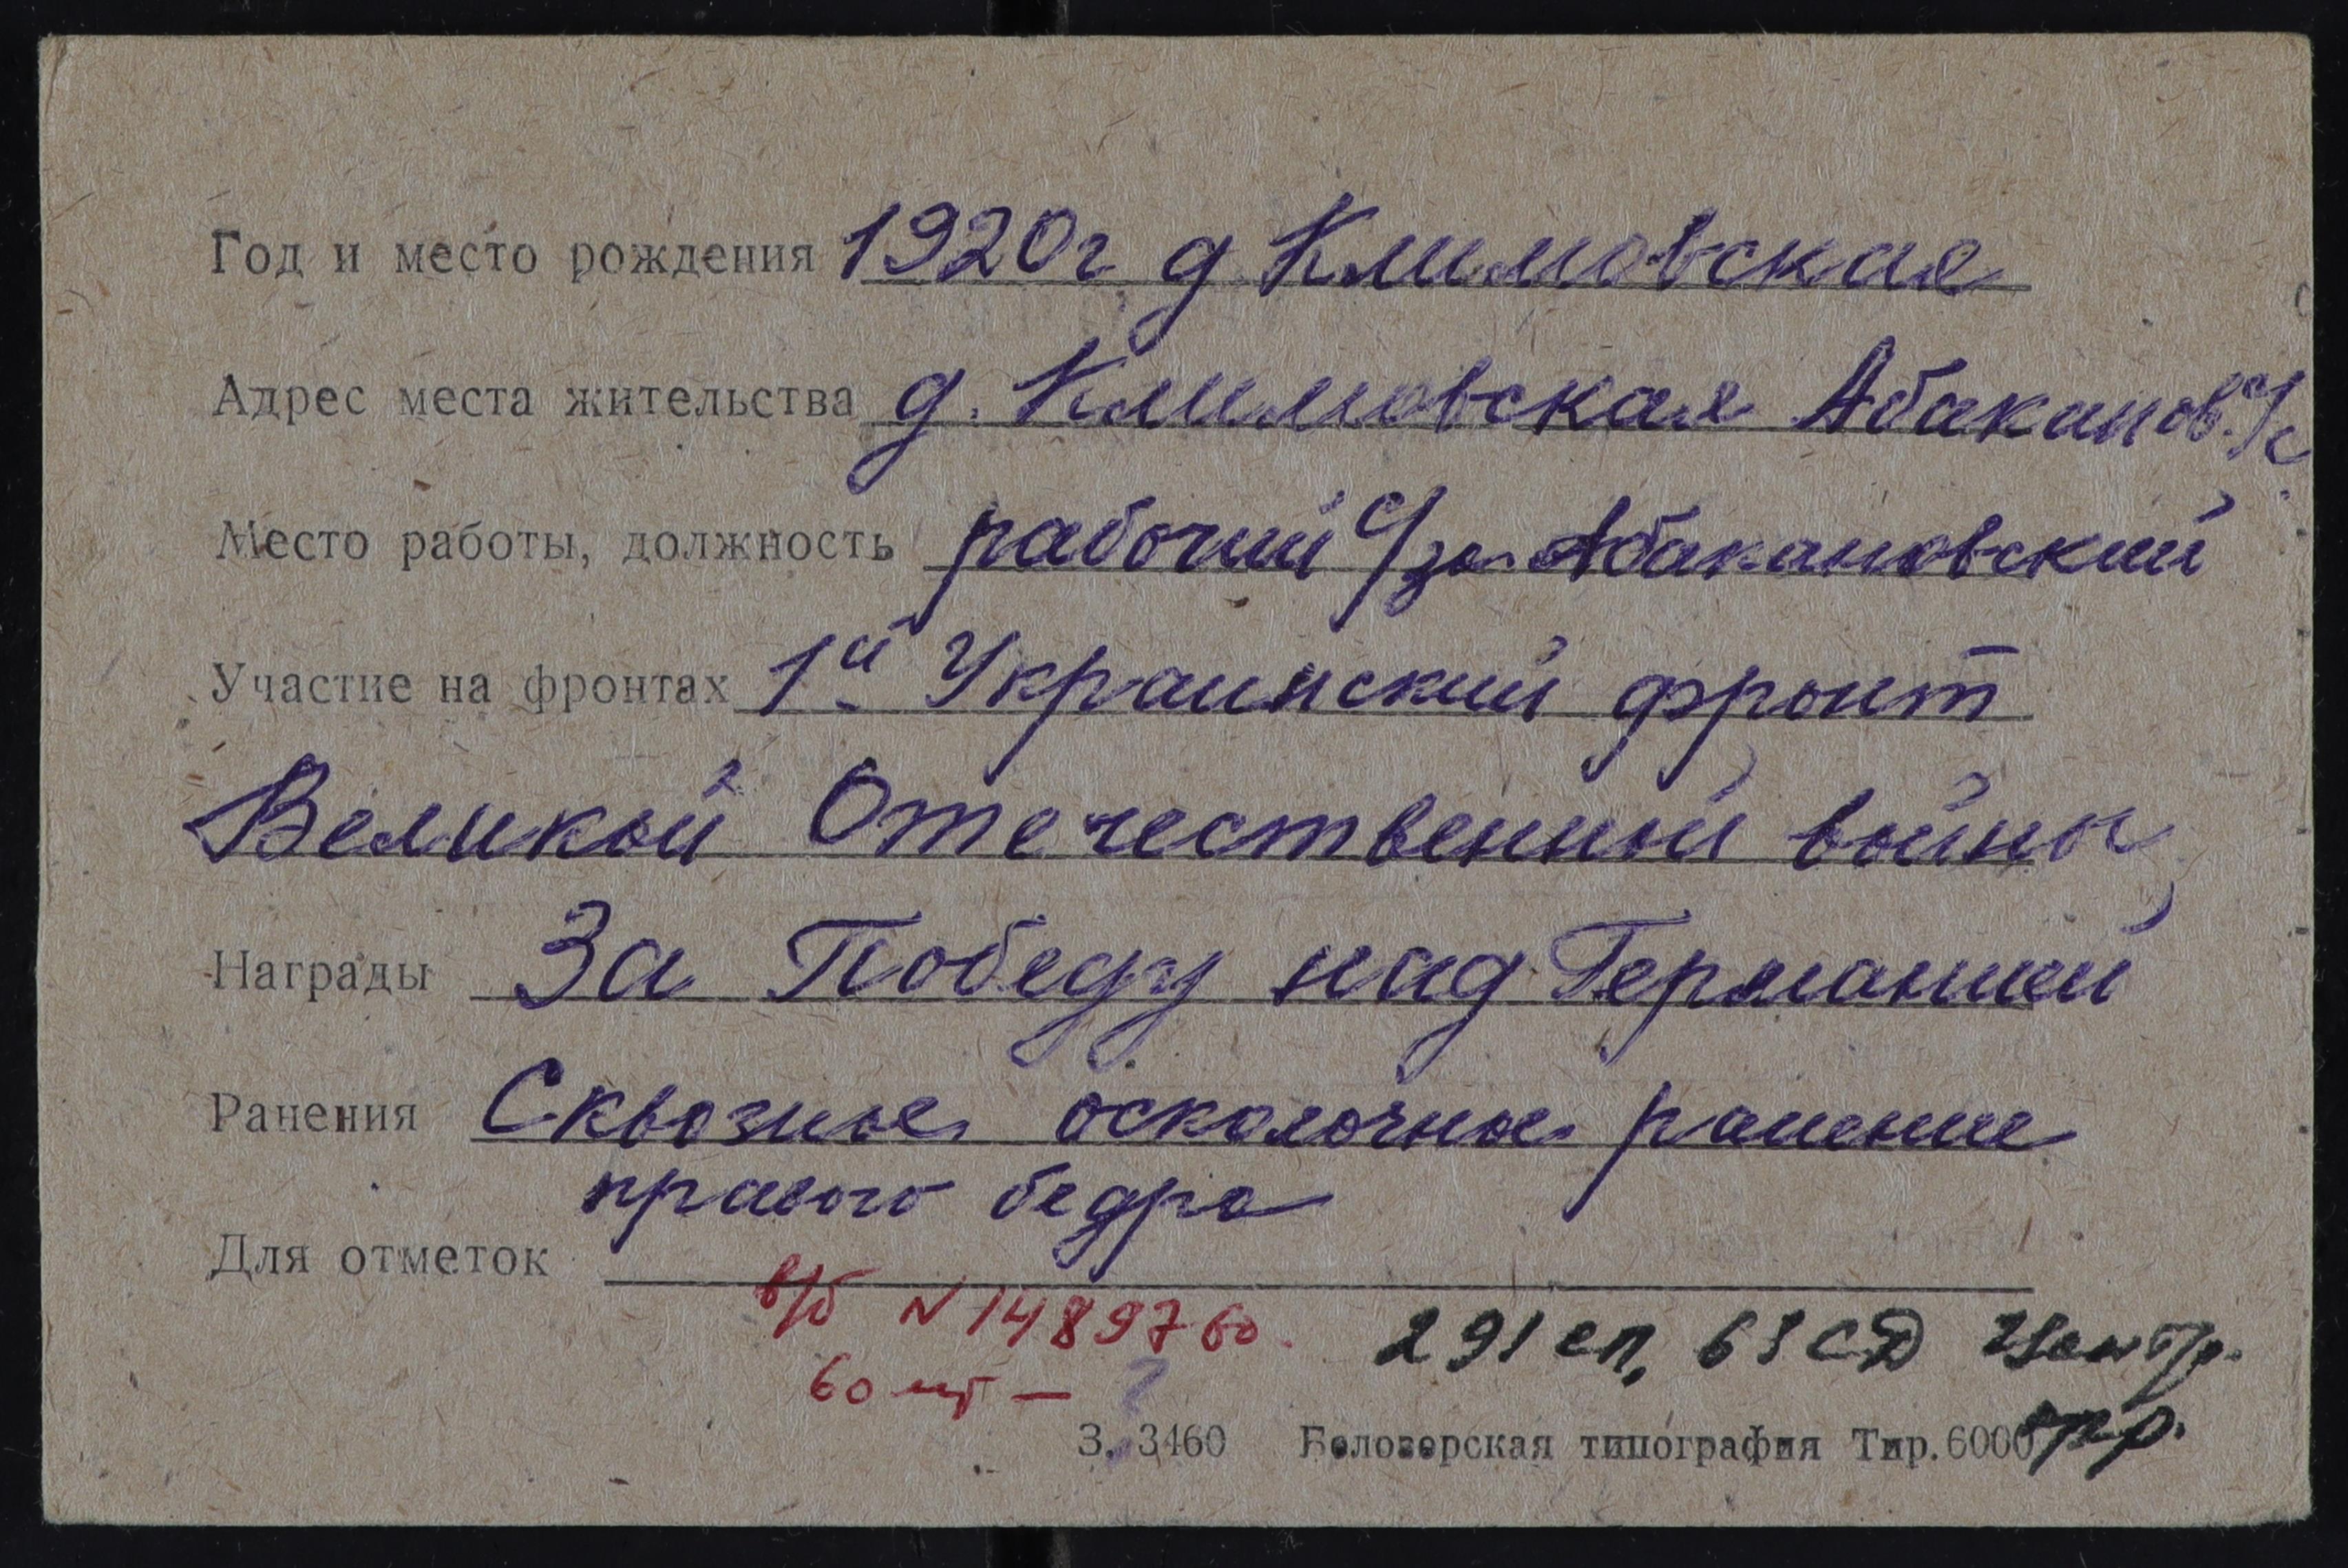 Год и место рождения 1920г д Климовская
Адрес места жительства д. Климовская Абаканов. с/с
Место работы, должность рабочий с/за Абакановский
Участие на фронтах 1й Украинский фронт
Великой Отечественной войны
Награды За Победу над Германией
Ранения Сквозное осколочное ранение
правого бедра
Для отметок
в/б N 1489760.
291 сп, 63 СД Центр.
60 шт —
фр.
З. 3460 Белозерская типография Тир. 6000